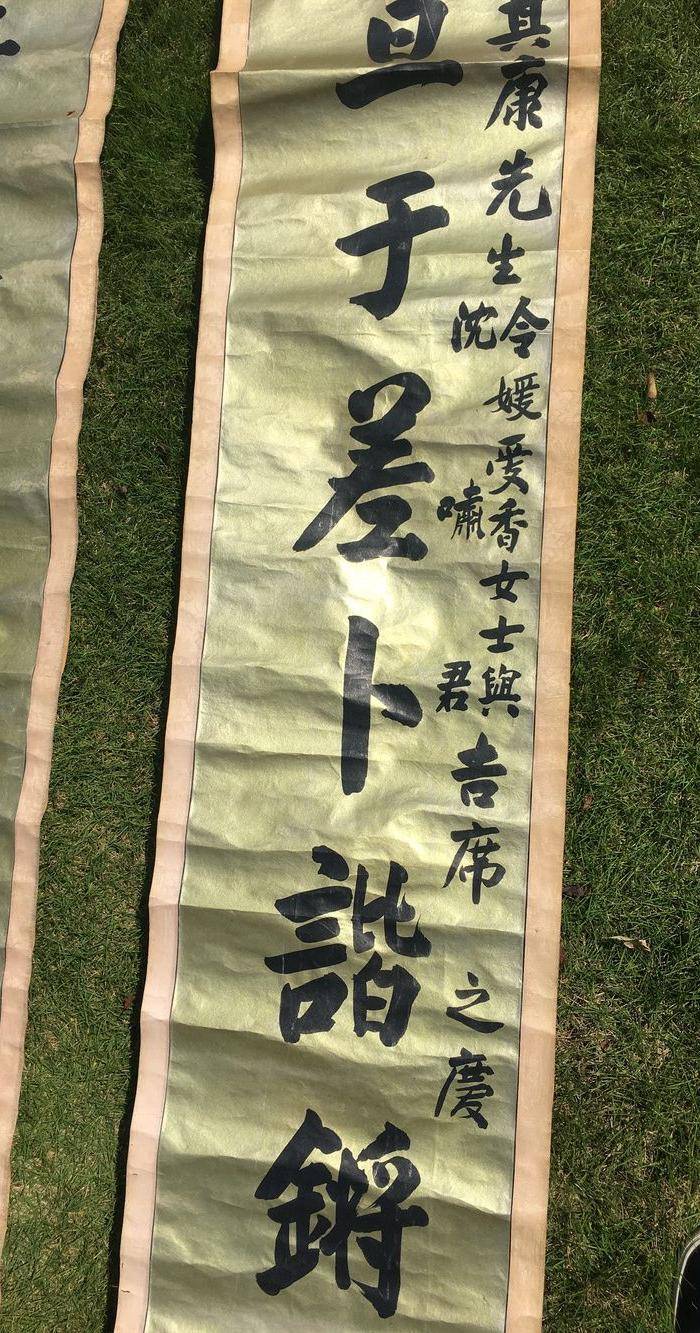 其康先生
令媛愛香女士與
沈嘯君
吉席之慶
旦于差卜諧鏘